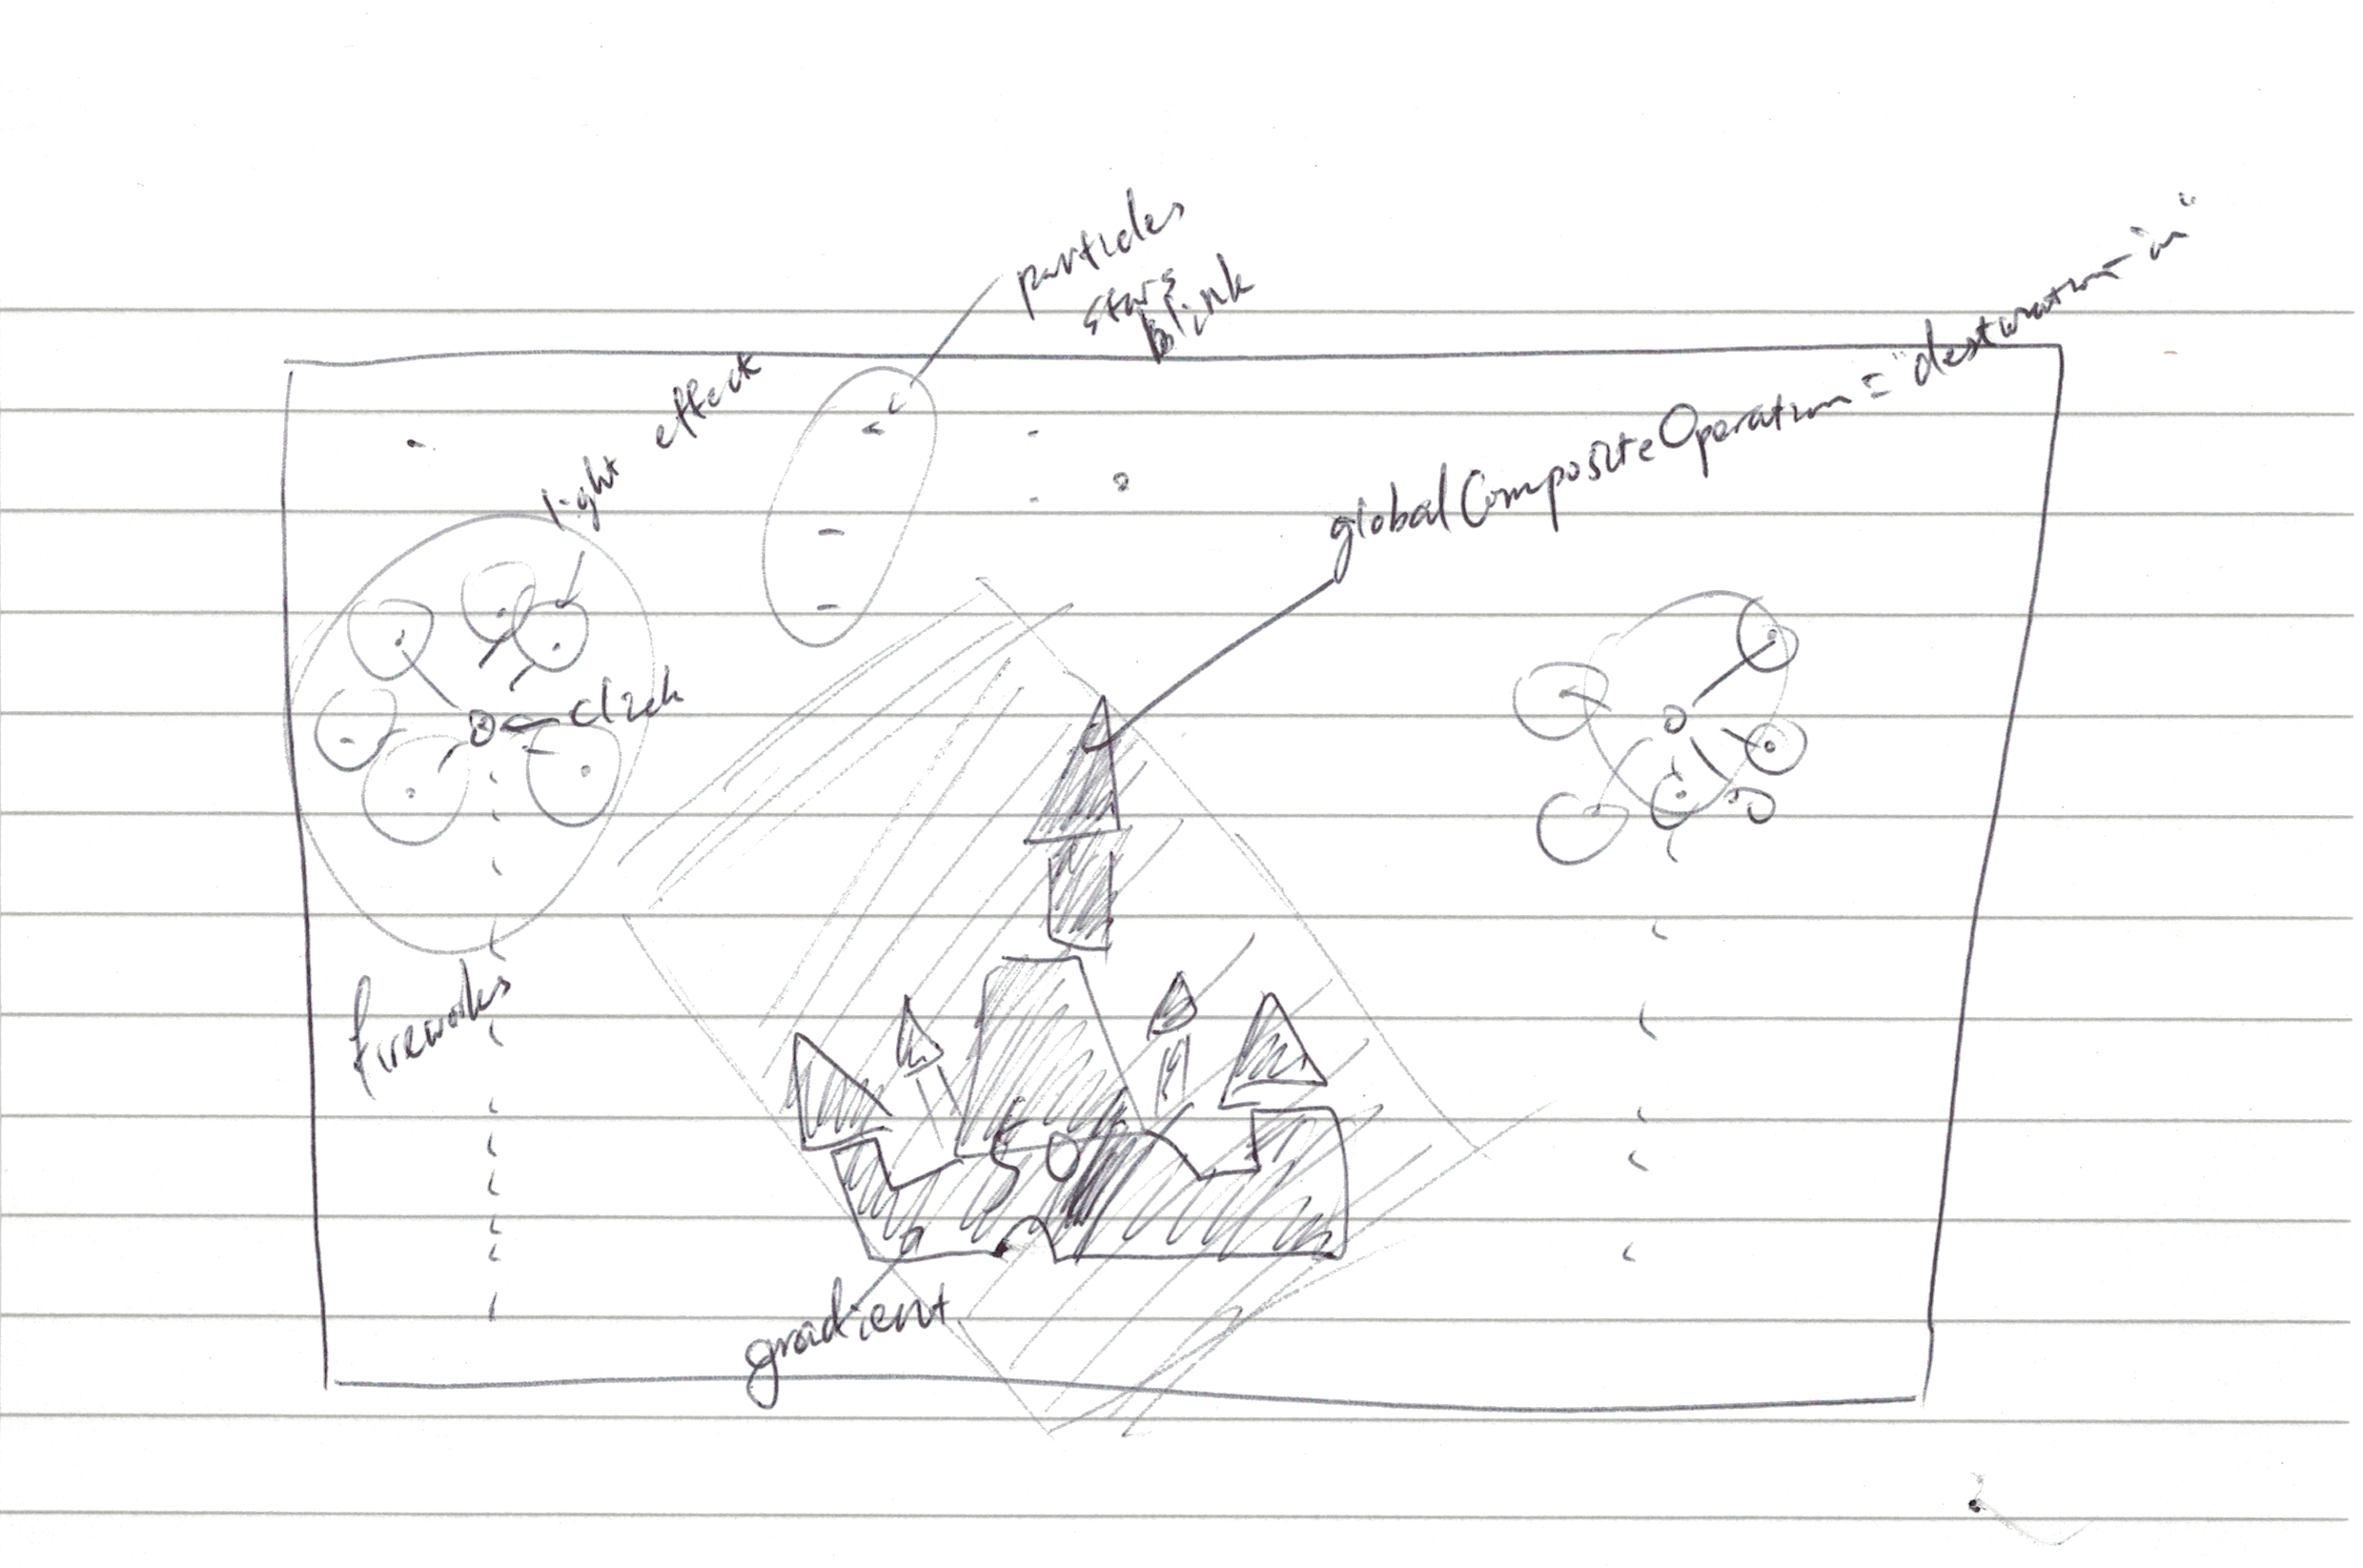 particles
stars
blink
light effect
globalCompositeOperation = "destination-in"
click
fireworks
gradient